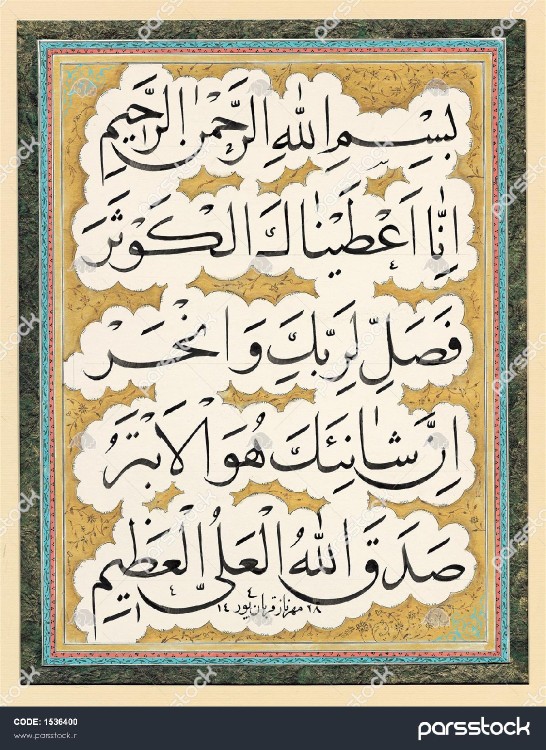 بِسْمِ اللهِ الرَّحْمنِ الرَّحيمِ
اِنّا اَعْطَيْناكَ الْكَوْثَرَ
فَصَلِّ لِرَبِّكَ وَ انْحَرْ
اِنَّ شانِئَكَ هُوَ الْاَبْتَرُ
صَدَقَ اللهُ الْعَلِيُّ الْعَظيمِ
مهرناز قربان‌پور
CODE: 1536400
www.parsstock.ir
parsstock